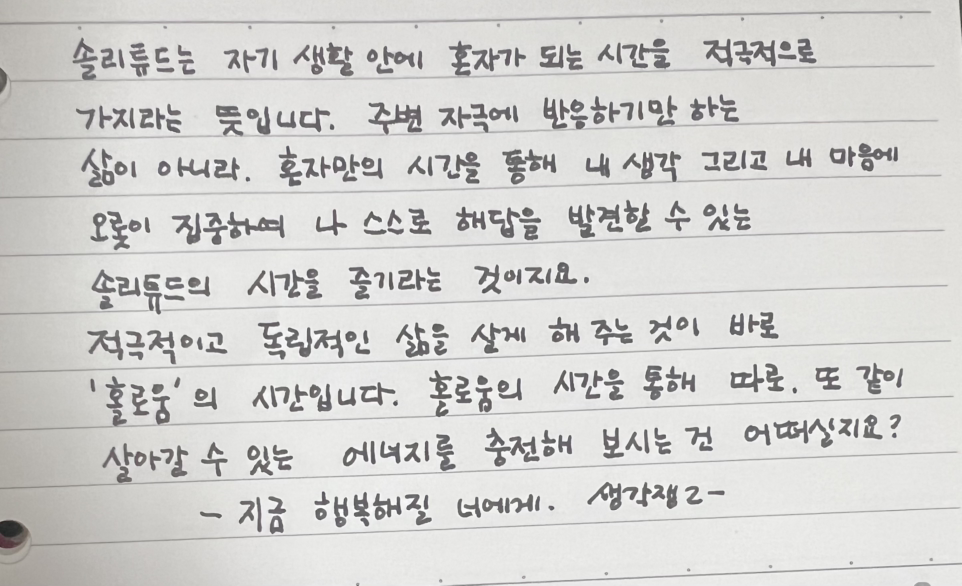 솔리튜드는 자기 생활 안에 혼자가 되는 시간을 적극적으로
가지라는 뜻입니다. 주변 자극에 반응하기만 하는
삶이 아니라. 혼자만의 시간을 통해 내 생각 그리고 내 마음에
오롯이 집중하여 나 스스로 해답을 발견할 수 있는
솔리튜드의 시간을 즐기라는 것이지요.
적극적이고 독립적인 삶을 살게 해 주는 것이 바로
'홀로움'의 시간입니다. 홀로움의 시간을 통해 따로. 또 같이
살아갈 수 있는 에너지를 충전해 보시는 건 어떠실지요?
- 지금 행복해질 너에게. 생각쟁2 -